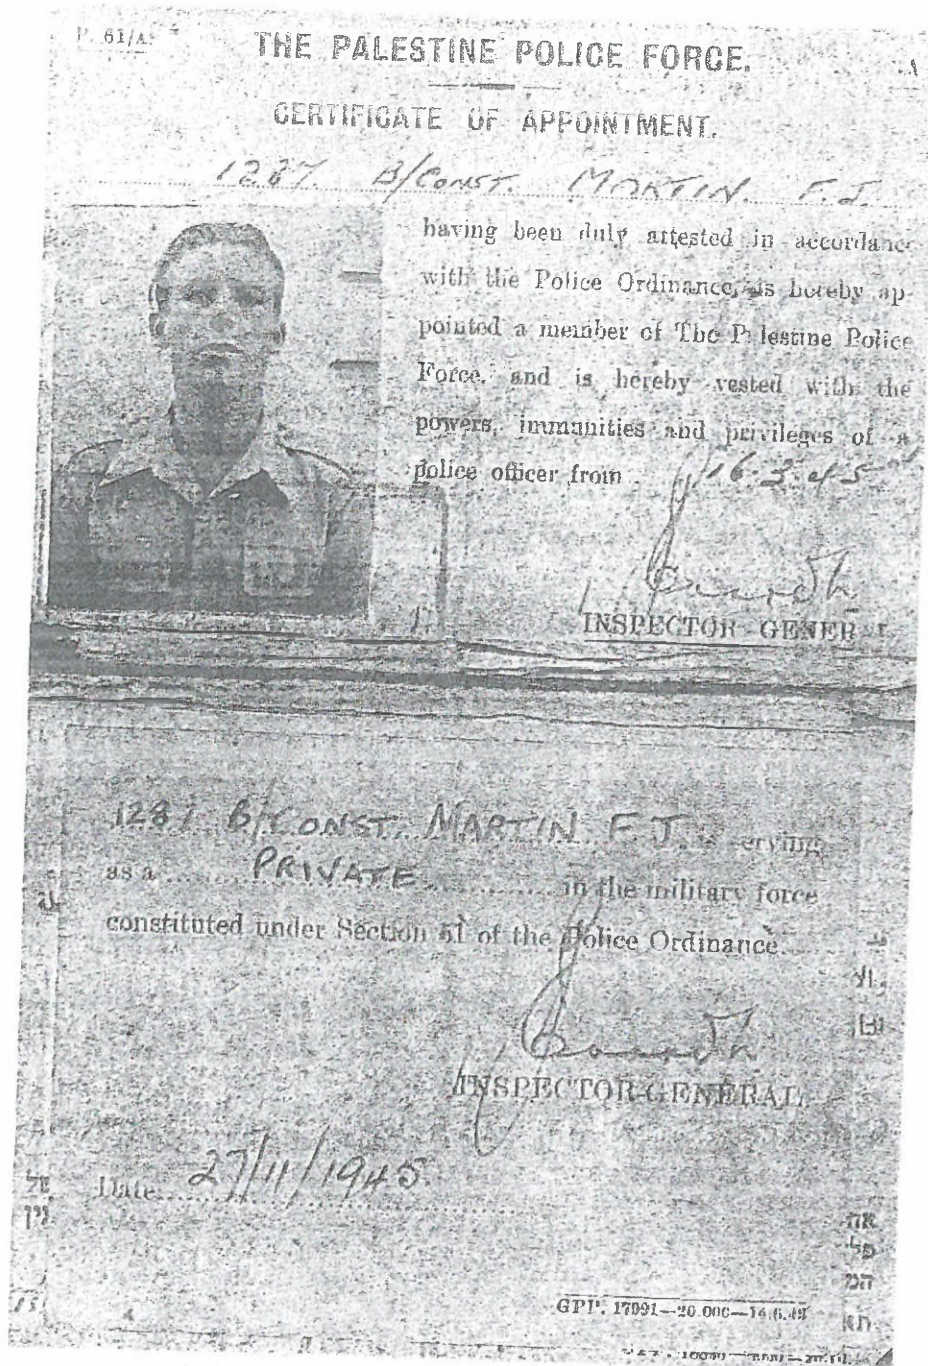 P. 61/A.
THE PALESTINE POLICE FORCE.
CERTIFICATE OF APPOINTMENT.
1287. B/CONST. MARTIN. F.J.
having been duly attested in accordance
with the Police Ordinance, is hereby ap-
pointed a member of The P lestine Police
Force, and is hereby vested with the
powers, immunities and privileges of a
police officer from 16.3.45
INSPECTOR-GENER
B/CONST. MARTIN F J. is serving
as a PRIVATE in the military force
constituted under Section 51 of the Police Ordinance.
INSPECTOR-GENERAL
Date 27/11/1945.
של
אה
פל
המ
GPP. 17991—20.000—14.6.45